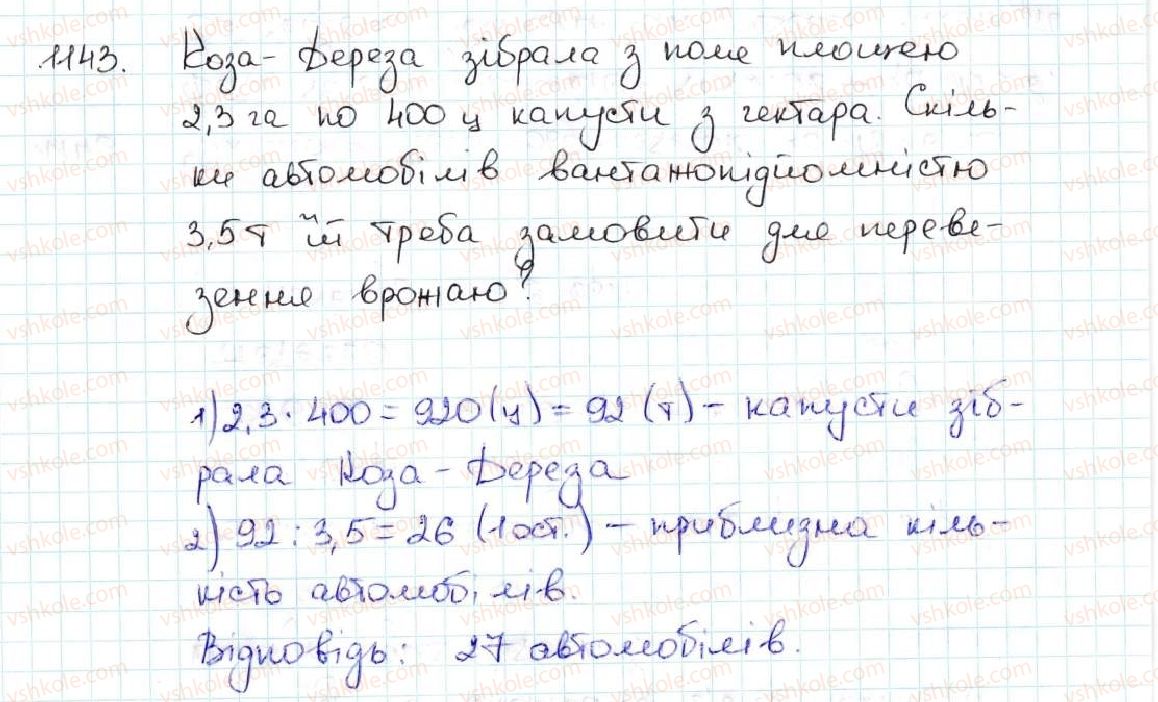 1143. Коза-Дереза зібрала з поля площею
2,3 га по 400 ц капусти з гектара. Скіль-
ки автомобілів вантажопідйомністю
3,5 т їй треба замовити для переве-
зення врожаю?
1) 2,3 · 400 = 920 (ц) = 92 (т) – капусти зіб-
рала Коза-Дереза
2) 92 : 3,5 = 26 (1 ост.) – приблизна кіль-
кість автомобілів.
Відповідь: 27 автомобілів.